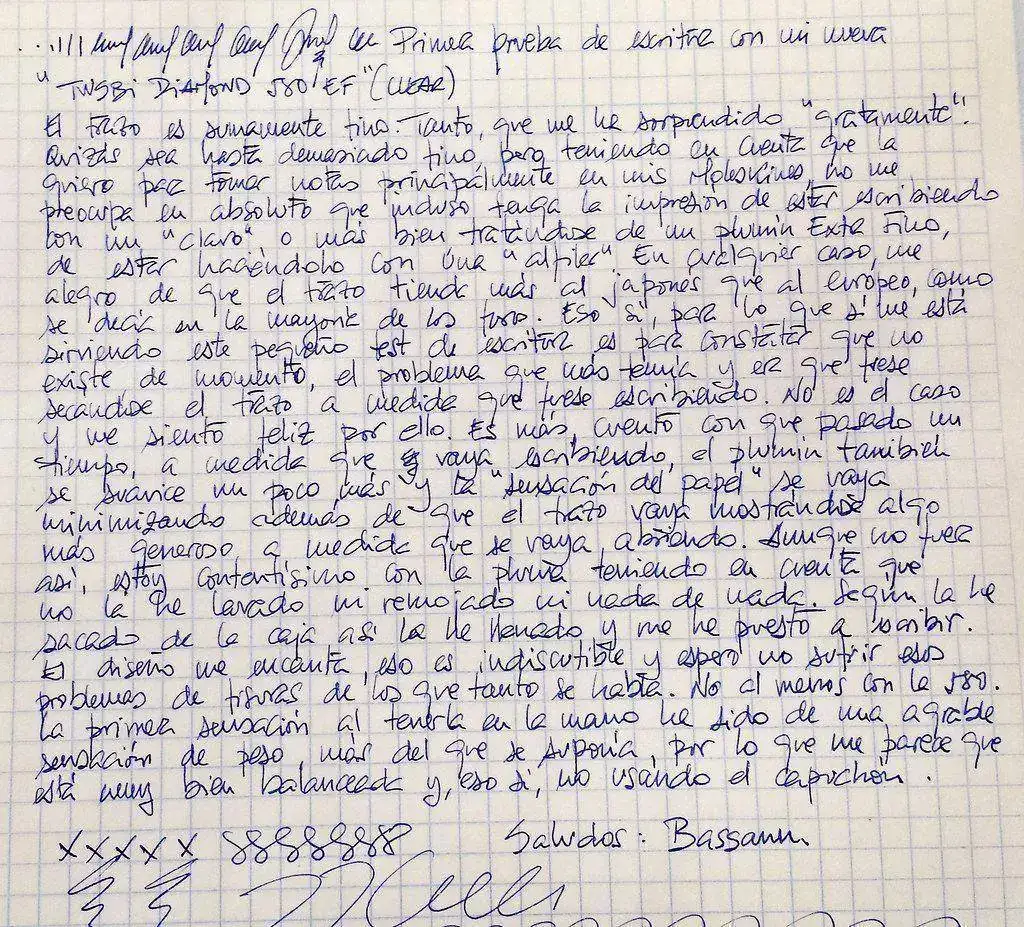 Primera prueba de escritura con mi nueva
"TWSBi DIAMOND 580 EF" (CLEAR)
El trazo es sumamente fino. Tanto, que me he sorprendido "gratamente".
Quizás sea hasta demasiado fino, pero teniendo en cuenta que la
quiero para tomar notas principalmente en mis Moleskines, no me
preocupa en absoluto que incluso tenga la impresión de estar escribiendo
con un "clavo", o más bien tratándose de un plumín Extra Fino,
de estar haciéndolo con una "alfiler" En cualquier caso, me
alegro de que el trazo tienda más al japonés que al europeo, como
se decía en la mayoría de los foros. Eso sí, para lo que sí me está
sirviendo este pequeño test de escritura es para constatar que no
existe de momento, el problema que más temía y era que fuese
secándose el trazo a medida que fuese escribiendo. No es el caso
y me siento feliz por ello. Es más, cuento con que pasado un
tiempo, a medida que vaya escribiendo, el plumín también
se suavice un poco más y la "sensación del papel" se vaya
minimizando además de que el trazo vaya mostrándose algo
más generoso, a medida que se vaya abriendo. Aunque no fuera
así, estoy contentísimo con la pluma teniendo en cuenta que
no la he lavado ni remojado ni nada de nada. Según la he
sacado de la caja así la he llenado y me he puesto a escribir.
El diseño me encanta, eso es indiscutible y espero no sufrir esos
problemas de fisuras de los que tanto se habla. No al menos con la 580.
La primera sensación al tenerla en la mano ha sido de una agrable
sensación de peso, más del que se suponía, por lo que me parece que
está muy bien balanceada y, eso sí, no usando el capuchón.
xxxxx 8888888 Saludos: Bassann.